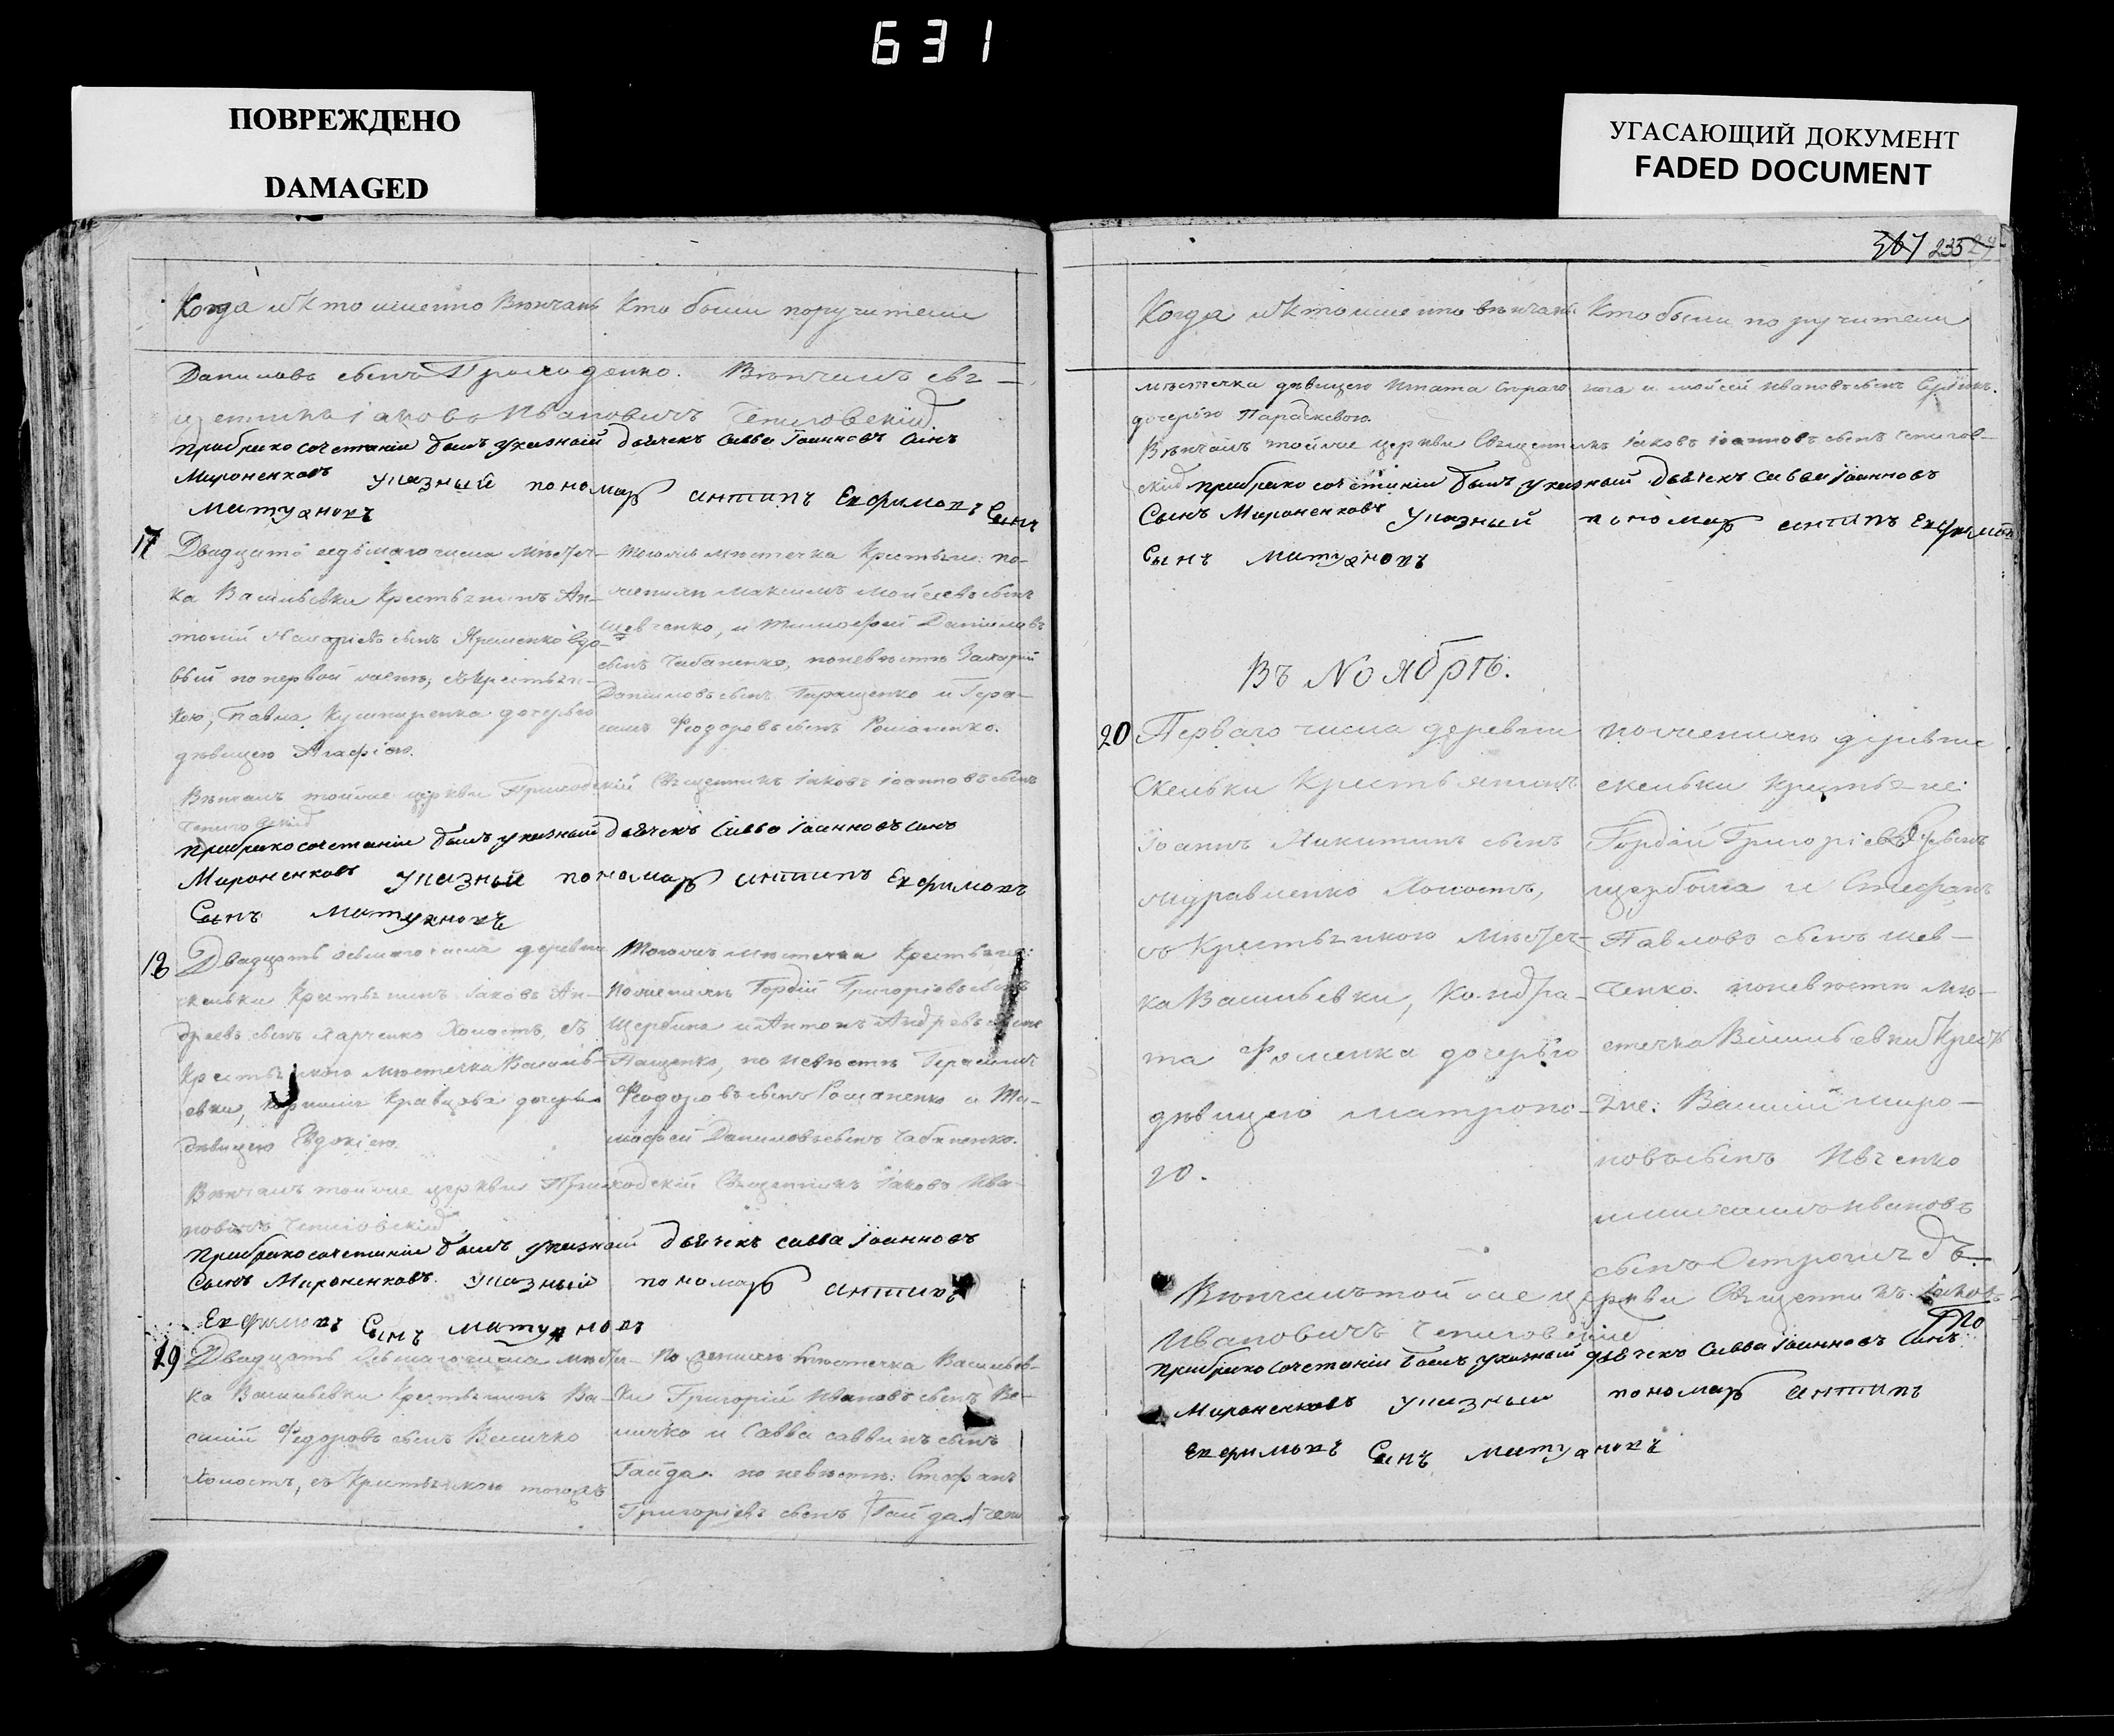 631
ПОВРЕЖДЕНО
DAMAGED
УГАСАЮЩИЙ ДОКУМЕНТ
FADED DOCUMENT
Когда и Кто именно Венчанъ
Кто были поручители
Даниловъ сынъ. Венчалъ свя-
щенникъ Іаковъ Ивановичъ
прибракосочетаніи былъ указный дьячекъ Савва Іоанновъ Синъ
Мироненковъ указный пономар антипъ Евфимовъ Сынъ
Матуановъ
17
Двадцать седьмаго числа Местеч-
ка Васильевки Крестьянинъ Ан-
тоній сынъ Яременко вдо-
вый по первой жене, съ Крестьян-
кою, Павла Кушниренка дочерью
девицею Агафіею.
тогожъ местечка Крестьяне: по-
женихе Максимъ Мойсеевъ сынъ
Шевченко, и Тимофей Даниловъ
сынъ Чабаненко, по невесте Захарій
Даниловъ сынъ Геращенко и Гера-
симъ Феодоровъ сынъ Романенко.
Венчалъ тойже церкви Приходскій Священникъ Іаковъ Іоанновъ сынъ
прибракосочетаніи былъ указный дьячекъ Савва Іоанновъ синъ
Мироненковъ указный пономар антипъ Евфимовъ
Сынъ Матуановъ
18
Двадцать осьмаго числа деревни
скельки Крестьянинъ Іаковъ Ан-
дреевъ сынъ Харченко Холостъ, съ
Крестьянкою местечка Василь-
евки, Кравцова дочерью
девицею Евдокіею.
Тогожъ местечка Крестьяне:
по женихе Гордій Григоріевъ сынъ
Щербина и Антонъ Андреевъ сынъ
Пащенко, по невесте Герасимъ
Феодоровъ сынъ Романенко и Ти-
мофей Даниловъ сынъ Чабаненко.
Венчалъ тойже церкви Приходскій Священникъ Іаковъ Ива-
новичъ
прибракосочетаніи былъ указный дьячекъ савва Іоанновъ
Сынъ Мироненковъ. указный пономар антипъ
Евфимовъ Сынъ Матуановъ
19
Двадцать осьмаго числа Местеч-
ка Васильевки Крестьянинъ Ва-
силій Федоровъ сынъ Величко
Холостъ, съ Крестьянкою тогожъ
По женихе местечка Васильев-
ки Григорій Ивановъ сынъ Ве-
личко и Савва саввинъ сынъ
Гайда. по невесте: Стефанъ
Григоріевъ сынъ Гайда
367 235
Когда и Кто именно венчанъ
Кто были поручители
местечка девицею Игната
дочерью Параскевою.
и мойсей Ивановъ сынъ
Венчалъ тойже церкви Священникъ Іаковъ Іоанновъ сынъ
прибракосочетаніи былъ указный дьячекъ савва Іоанновъ
Сынъ Мироненковъ указный пономар антипъ Евфимовъ
Сынъ Матуановъ
Въ Ноябре.
20
Перваго числа деревни
Скельки Крестьянинъ
Іоаннъ Никитинъ сынъ
Муравленко Холостъ,
съ Крестьянкою Местеч-
ка Васильевки, Кондра-
та Фоменка дочерью
девицею Матроно-
ю.
по женихе деревни
скельки Крестьяне:
Гордій Григоріевъ сынъ
щербина и Стефанъ
Павловъ сынъ шев-
ченко. по невесте ме-
стечка Васильевки Кресть
яне: Василій миро-
новъ сынъ Ивченко
и михаилъ Ивановъ
сынъ
Венчалъ тойже церкви Священникъ Іаковъ
Ивановичъ
прибракосочетаніи былъ указный дьячекъ Савва Іоанновъ Синъ
Мироненковъ указный пономар антипъ
Евфимовъ Сынъ Матуановъ